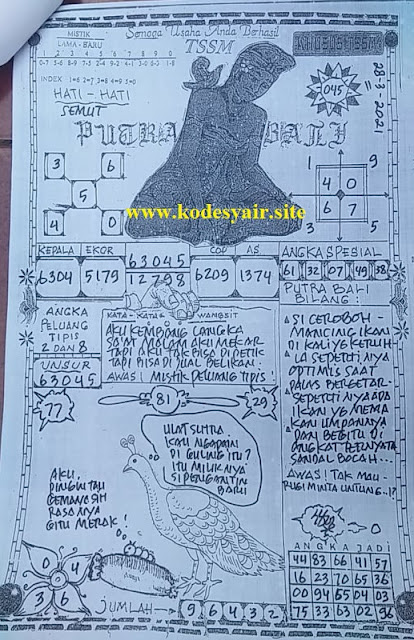 Semoga Usaha Anda Berhasil
TSSM
MISTIK
LAMA - BARU
1 2 3 4 5 6 7 8 9 0
INDEX
HATI - HATI
SEMUT
045
28-3-2021
PUTRA BALI
3 6
5
4 0
1 9
4 0
6 7
3 5
www.kodesyair.site
KEPALA EKOR
6304 5179
63045
12798
COD AS
6209 1374
ANGKA SPESIAL
61 32 07 49 38
ANGKA
PELUANG
TIPIS
2 DAN 8
UNSUR
63045
KATA - KATA WANGSIT
AKU KEMBANG LANGKA
SAAT MALAM AKU MEKAR
TAPI AKU TAK BISA DI PETIK
TAPI BISA DI JUAL BELIKAN.
AWAS! MISTIK PELUANG TIPIS!
PUTRA BALI
BILANG:
SI CEROBOH -
MANCING IKAN
DI KALI YG KERUH
LA SEPERTINYA
OPTIMIS SAAT
PALNS BERGETAR-
SEPERTINYA ADA
IKAN YG MEMA
KAN UMPANNYA
DAN BEGITU DI
ANGKAT TERNYATA
SANDAL BOCAH...
AWAS! TAK MAU-
RUGI MINTA UNTUNG..!?
77
81
29
ULAT SUTRA
KAU NGAPAIN
DI GULING ITU?
ITU MILIKNYA
SI PENGANTIN
BARU
AKU,
PINGIN TAU
GEMANA SIH
RASANYA
GITU MERAK!
0 4
3 6
JUMLAH
9 6 4 3 2
0
ANGKA JADI
44 83 66 41 57
16 23 70 65 36
00 94 65 04 03
75 33 63 02 96